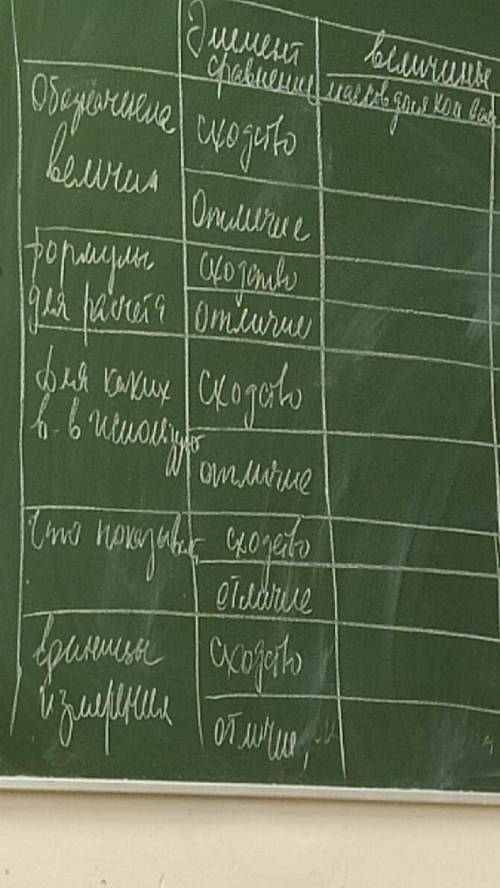 Элемент
сравнение
величины
массов доля кол вещ
Обозначение
величин
сходство
Отличие
формулы
для расчета
сходство
отличие
Для каких
в-в использую
сходство
отличие
Что показывает
сходство
отличие
Единицы
измерения
сходство
отличие